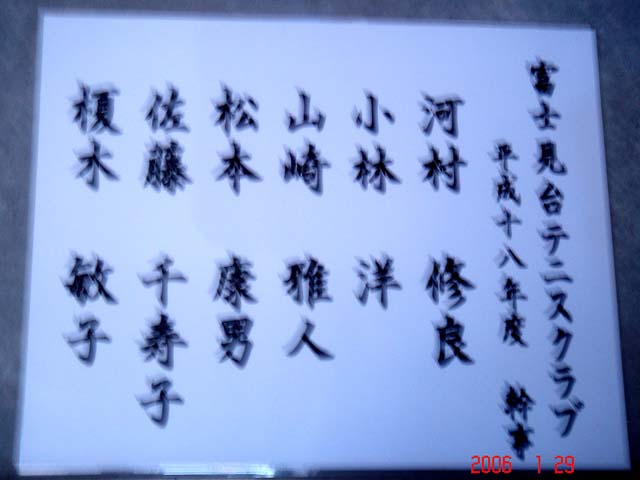 富士見台テニスクラブ
平成十八年度 幹事
河村 修良
小林 洋
山崎 雅人
松本 康男
佐藤 千寿子
榎木 敏子
2006 1 29